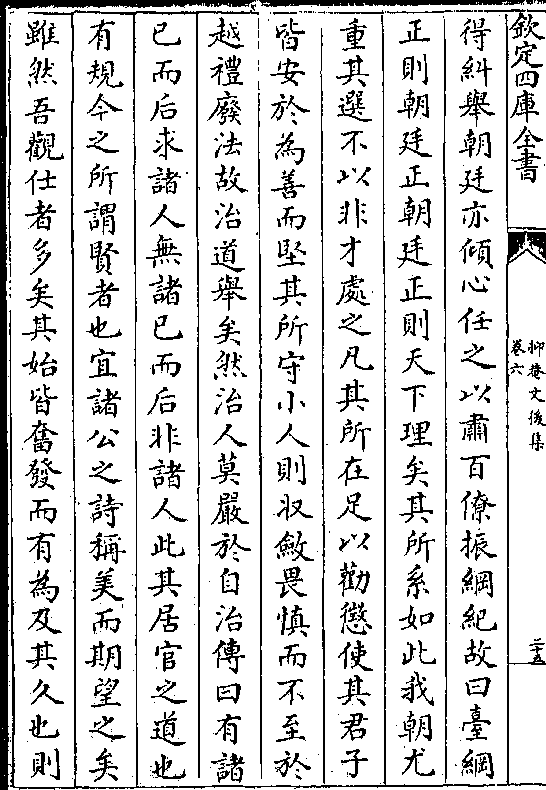 欽定四庫全書
抑菴文後集
卷六
二十五
得糾舉朝廷亦傾心任之以肅百僚振綱紀故曰臺綱
正則朝廷正朝廷正則天下理矣其所系如此我朝尤
重其選不以非才處之凡其所在足以勸懲使其君子
皆安於為善而堅其所守小人則収斂畏慎而不至於
越禮廢法故治道舉矣然治人莫嚴於自治傳曰有諸
已而后求諸人無諸已而后非諸人此其居官之道也
有規今之所謂賢者也宜諸公之詩稱美而期望之矣
雖然吾觀仕者多矣其始皆奮發而有為及其久也則